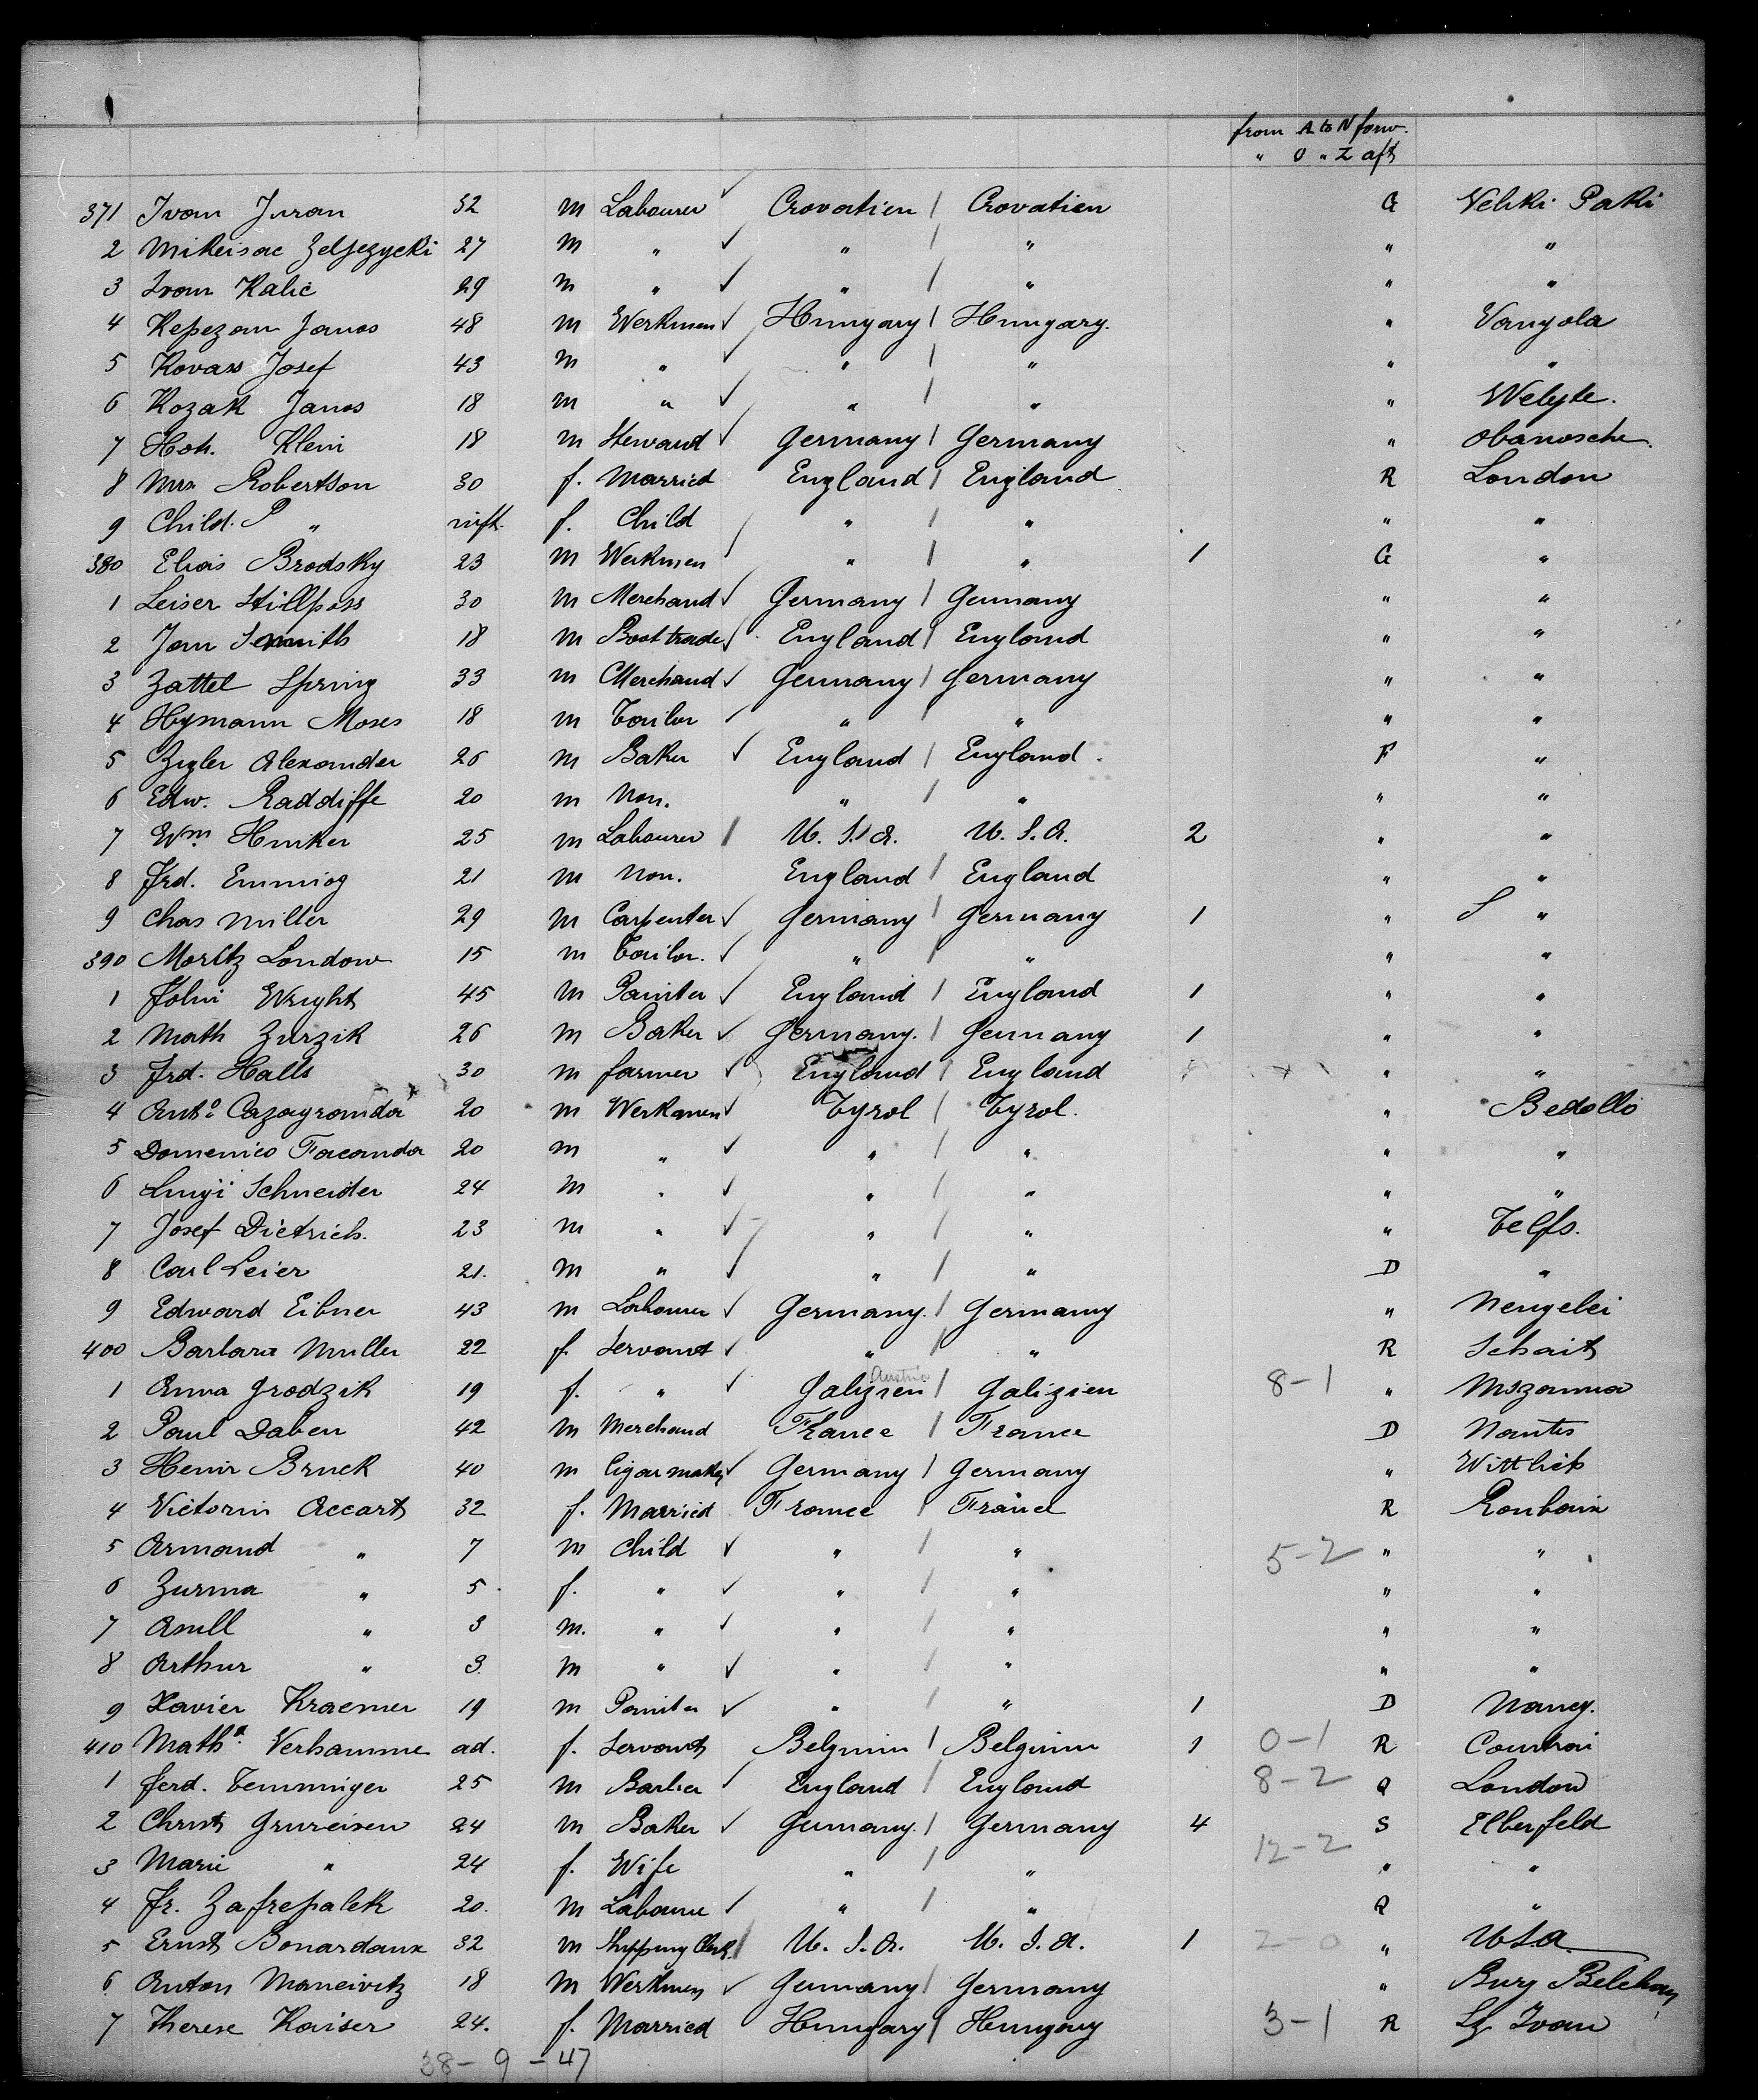 from A to N forw.
" O " Z aft
371 Ivan Juran 32 m Labourer ✓ Crovatien / Crovatien G Veliki Paki
2 Mikeisac Zeljezycki 27 m " ✓ " / " " "
3 Ivan Kalic 29 m " ✓ " / " " "
4 Kepezan Janos 48 m Werkmen ✓ Hungary / Hungary. " Vanyola
5 Kovass Josef 43 m " ✓ " / " " "
6 Kozak Janos 18 m " ✓ " / " " Welyte.
7 Hoh. Klein 18 m Steward ✓ Germany / Germany " Obanosche.
8 Mrs Robertson 30 f. Married England / England R London
9 Child. P " inft. f. Child " / " " "
380 Elias Brodsky 23 m Werkmen / " / " 1 G "
1 Leiser Stillpass 30 m Merchand ✓ Germany / Germany " "
2 Jam 18 m Boot trade ✓ England / England " "
3 Zattel Spring 33 m Merchand ✓ Germany / Germany " "
4 Hymann Moses 18 m Tailor ✓ " / " " "
5 Zigler Alexander 26 m Baker ✓ England / England. F "
6 Edw. Raddiffe 20 m Non. " / " " "
7 Wm. Huiker 25 m Labourer / U. S. A. U. S. A. 2 " "
8 Frd. Emmiog 21 m Non. England / England " "
9 Chas Miller 29 m Carpenter ✓ Germany / Germany 1 " "
390 Moritz London 15 m Tailor. ✓ " / " " "
1 John Wright 45 m Painter ✓ England / England 1 " "
2 Math Zurzik 26 m Baker ✓ Germany. / Germany 1 " "
3 Frd. Halls 30 m farmer ✓ England / England " "
4 Anto Cazagranda 20 m Werkmen ✓ Tyrol / Tyrol. " Bedollo
5 Domenico Facanda 20 m " ✓ " / " " "
6 Luigi Schneider 24 m " ✓ " / " " "
7 Josef Dietrich. 23 m " ✓ " / " " Telfs.
8 Carl Leier 21. m " ✓ " / " D "
9 Edward Eibner 43 m Labourer ✓ Germany. / Germany " Nengelei
400 Barbara Muller 22 f. Servant ✓ " / " R Schait
Austria
1 Anna Grodzik 19 f. " ✓ Galizien / Galizien 8-1 " Mszanna
2 Paul Daben 42 m Merchand France / France D Nantes
3 Henir Bruck 40 m Cigar maker ✓ Germany / Germany " Wittlich
4 Victorin Accart 32 f. Married France / France R Roubaix
5 Armand " 7 m Child ✓ " / " 5-2 " "
6 Zurma " 5 f. " ✓ " / " " "
7 Asull " 3 m. " ✓ " / " " "
8 Arthur " 3. m " ✓ " / " " "
9 Xavier Kraemer 19 m Painter ✓ " / " 1 D Nancy.
410 Matha. Verhamme ad. f. Servant Belgium / Belgium 1 0-1 R Courtrai
1 Ferd. Temminger 25 m Barber ✓ England / England 8-2 Q London
2 Christ Grureisen 24 m Baker ✓ Germany. / Germany 4 S Elberfeld
3 Marie " 24 f. Wife " / " 12-2 " "
4 Fr. Zafrepalek 20. m Labourer ✓ " / " Q "
5 Ernst Bonardaux 32 m Shipping Clerk / U. S. A. U. S. A. 1 2-0 " USA
6 Anton Maneivitz 18 m Werkmen ✓ Germany / Germany " Burg
7 Therese Kaiser 24. f. Married Hungary / Hungary 3-1 R Sz Ivan
38-9-47